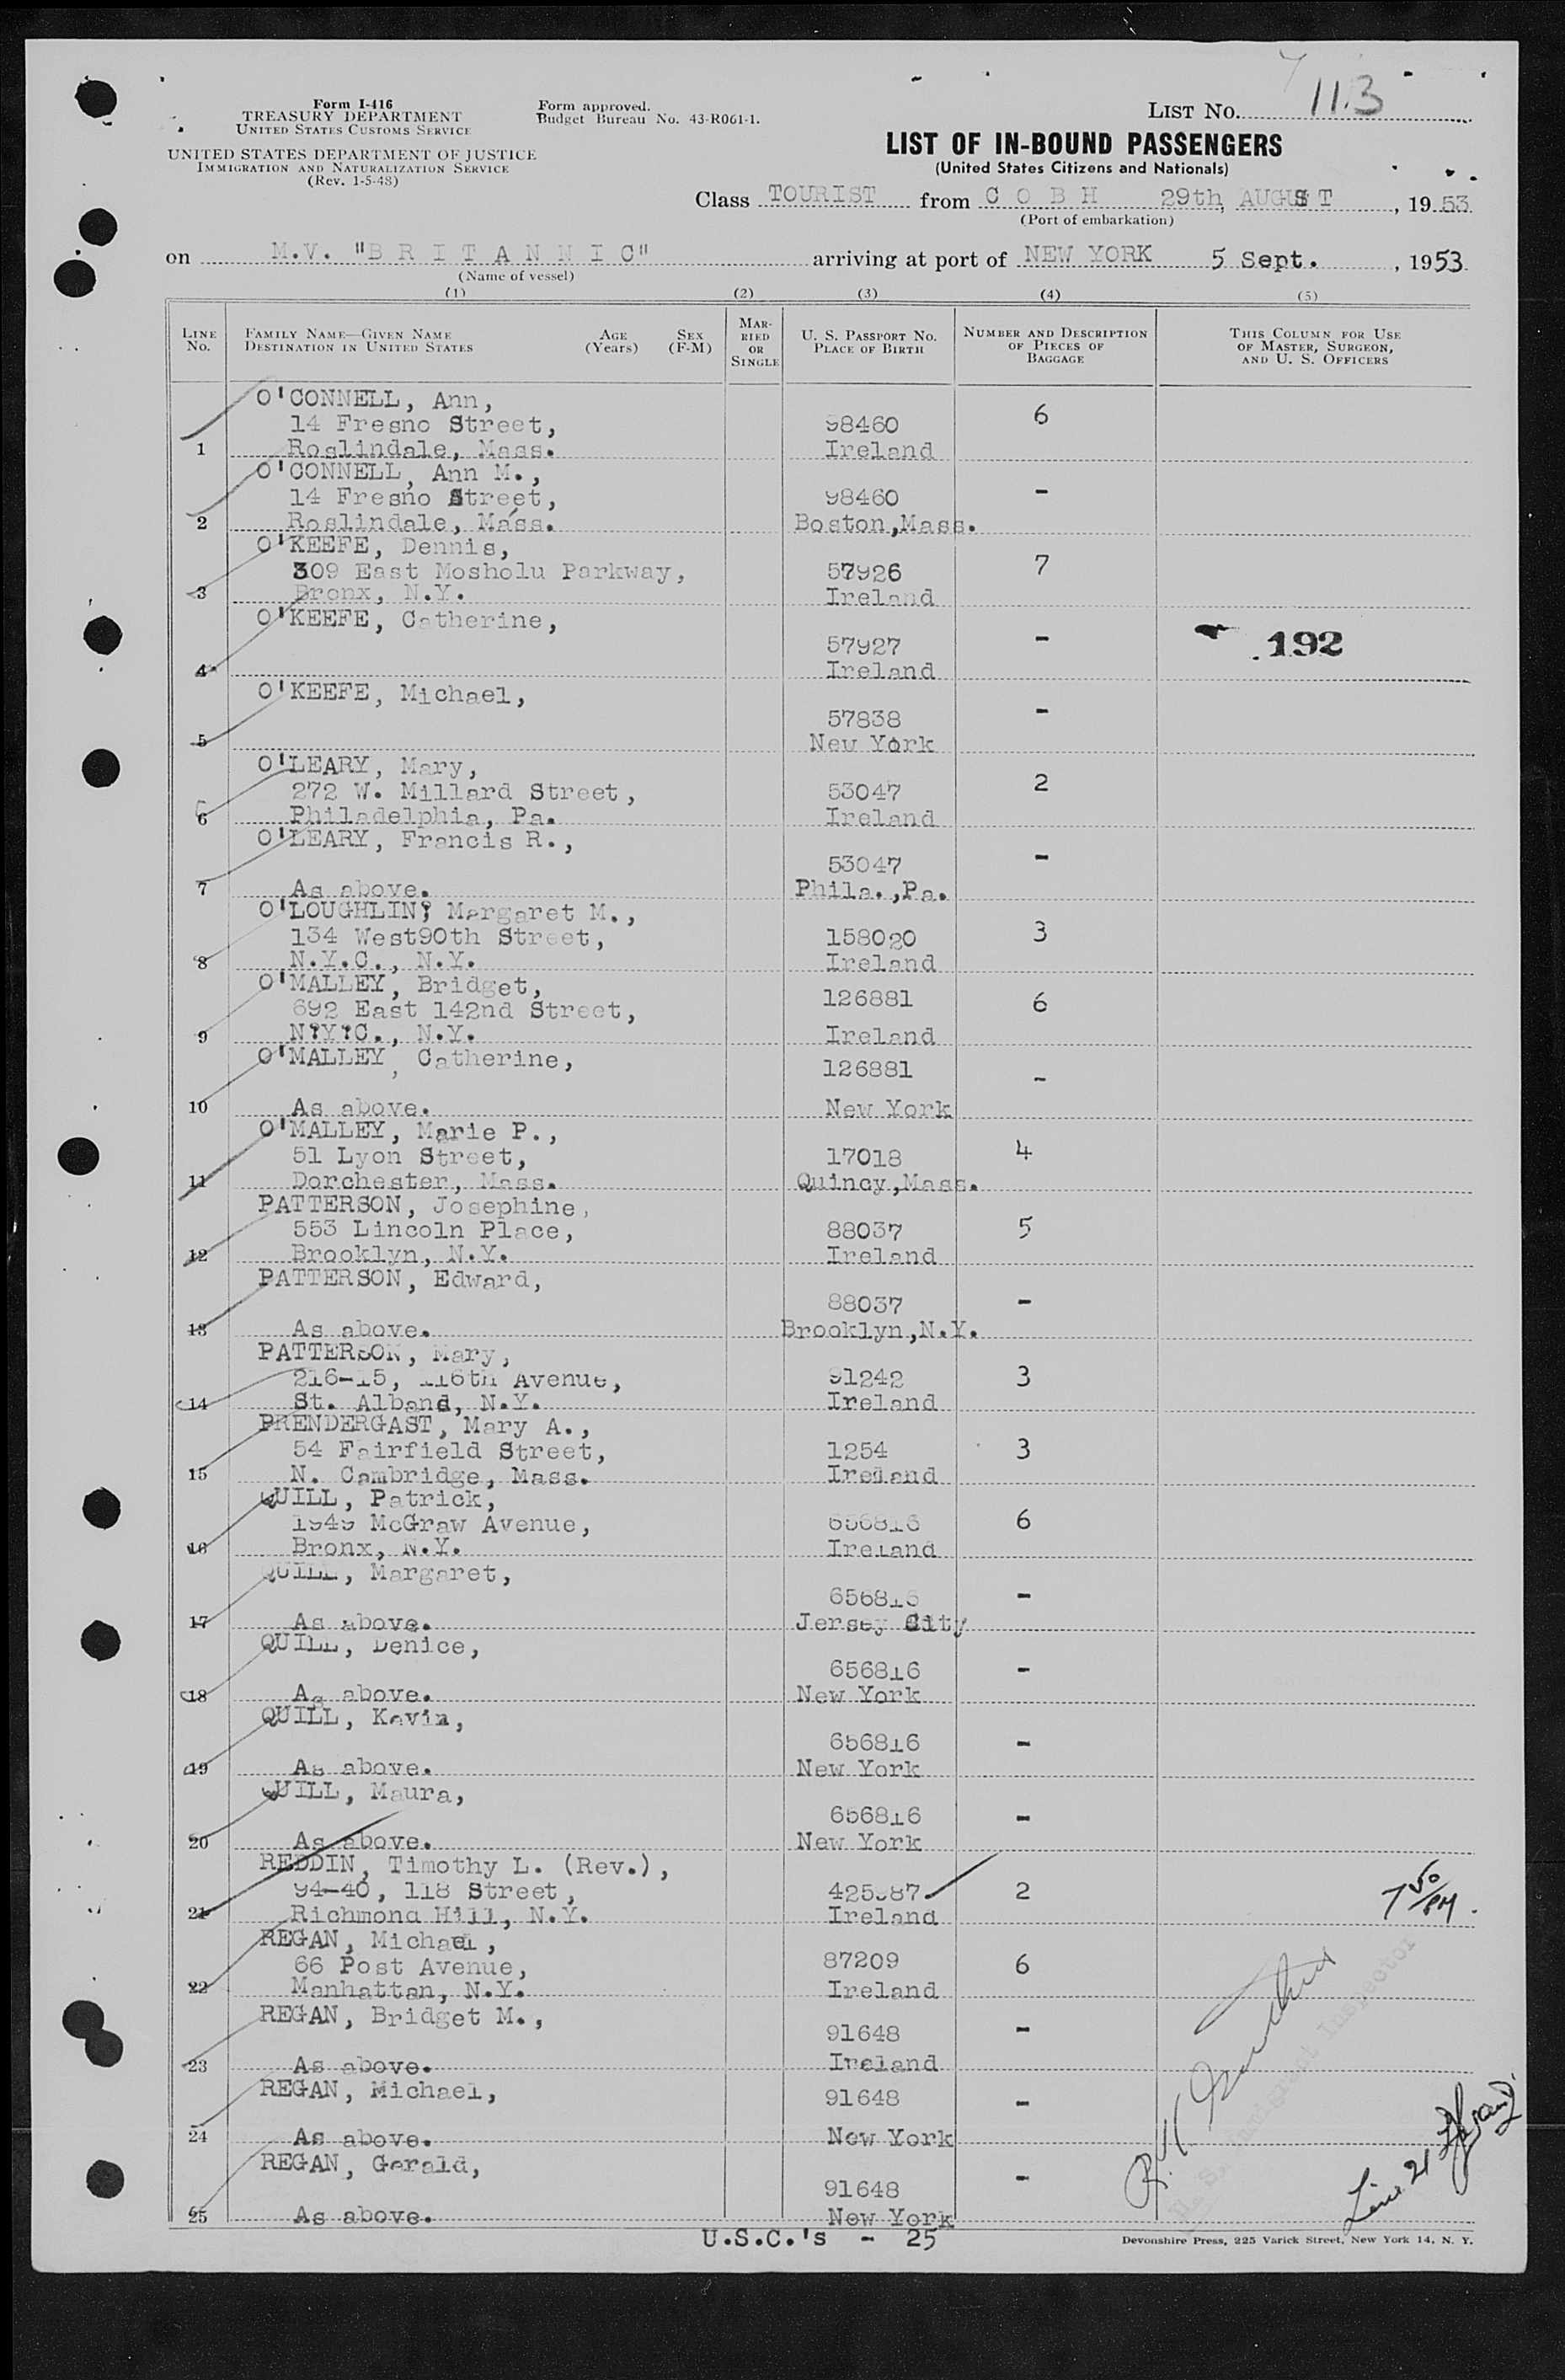 113
Form I-416
TREASURY DEPARTMENT
UNITED STATES CUSTOMS SERVICE
UNITED STATES DEPARTMENT OF JUSTICE
IMMIGRATION AND NATURALIZATION SERVICE
(Rev. 1-5-48)
Form approved.
Budget Bureau No. 43-R061-1.
LIST No.
LIST OF IN-BOUND PASSENGERS
(United States Citizens and Nationals)
Class TOURIST from C O B H 29th, AUGUST, 1953
(Port of embarkation)
on M.V. "B R I T A N N I C" arriving at port of NEW YORK 5 Sept., 1953
(Name of vessel)
(1) (2) (3) (4) (5)
LINE No.
FAMILY NAME—GIVEN NAME
DESTINATION IN UNITED STATES
AGE (Years)
SEX (F-M)
MARRIED OR SINGLE
U. S. PASSPORT No.
PLACE OF BIRTH
NUMBER AND DESCRIPTION OF PIECES OF BAGGAGE
THIS COLUMN FOR USE OF MASTER, SURGEON, AND U. S. OFFICERS
O'CONNELL, Ann,
14 Fresno Street, 98460 6
1 Roslindale, Mass. Ireland
O'CONNELL, Ann M.,
14 Fresno Street, 98460 -
2 Roslindale, Mass. Boston,Mass.
O'KEEFE, Dennis,
309 East Mosholu Parkway, 57926 7
3 Bronx, N.Y. Ireland
O'KEEFE, Catherine,
57927 - 192
4 Ireland
O'KEEFE, Michael,
57838 -
5 New York
O'LEARY, Mary,
272 W. Millard Street, 53047 2
6 Philadelphia, Pa. Ireland
O'LEARY, Francis R.,
53047 -
7 As above. Phila.,Pa.
O'LOUGHLIN, Margaret M.,
134 West90th Street, 158020 3
8 N.Y.C., N.Y. Ireland
O'MALLEY, Bridget, 126881
692 East 142nd Street, 6
9 N.Y.C., N.Y. Ireland
O'MALLEY, Catherine, 126881
-
10 As above. New York
O'MALLEY, Marie P.,
51 Lyon Street, 17018 4
11 Dorchester, Mass. Quincy,Mass.
PATTERSON, Josephine,
553 Lincoln Place, 88037 5
12 Brooklyn, N.Y. Ireland
PATTERSON, Edward,
88037 -
13 As above. Brooklyn,N.Y.
PATTERSON, Mary,
216-15, 116th Avenue, 91242 3
14 St. Albans, N.Y. Ireland
PRENDERGAST, Mary A.,
54 Fairfield Street, 1254 3
15 N. Cambridge, Mass. Ireland
QUILL, Patrick,
1949 McGraw Avenue, 656816 6
16 Bronx, N.Y. Ireland
QUILL, Margaret,
656816 -
17 As above. Jersey City
QUILL, Denice,
656816 -
18 As above. New York
QUILL, Kevin,
656816 -
19 As above. New York
QUILL, Maura,
656816 -
20 As above. New York
REDDIN, Timothy L. (Rev.),
94-40, 118 Street, 2
21 Richmond Hill, N.Y. Ireland
REGAN, Michael, 87209
66 Post Avenue, 6
22 Manhattan, N.Y. Ireland
REGAN, Bridget M.,
91648 -
23 As above. Ireland
REGAN, Michael, 91648
-
24 As above. New York
REGAN, Gerald,
91648 -
25 As above. New York
Immigrant Inspector
Line 21
U.S.C.'s - 25
Devonshire Press, 225 Varick Street, New York 14, N. Y.